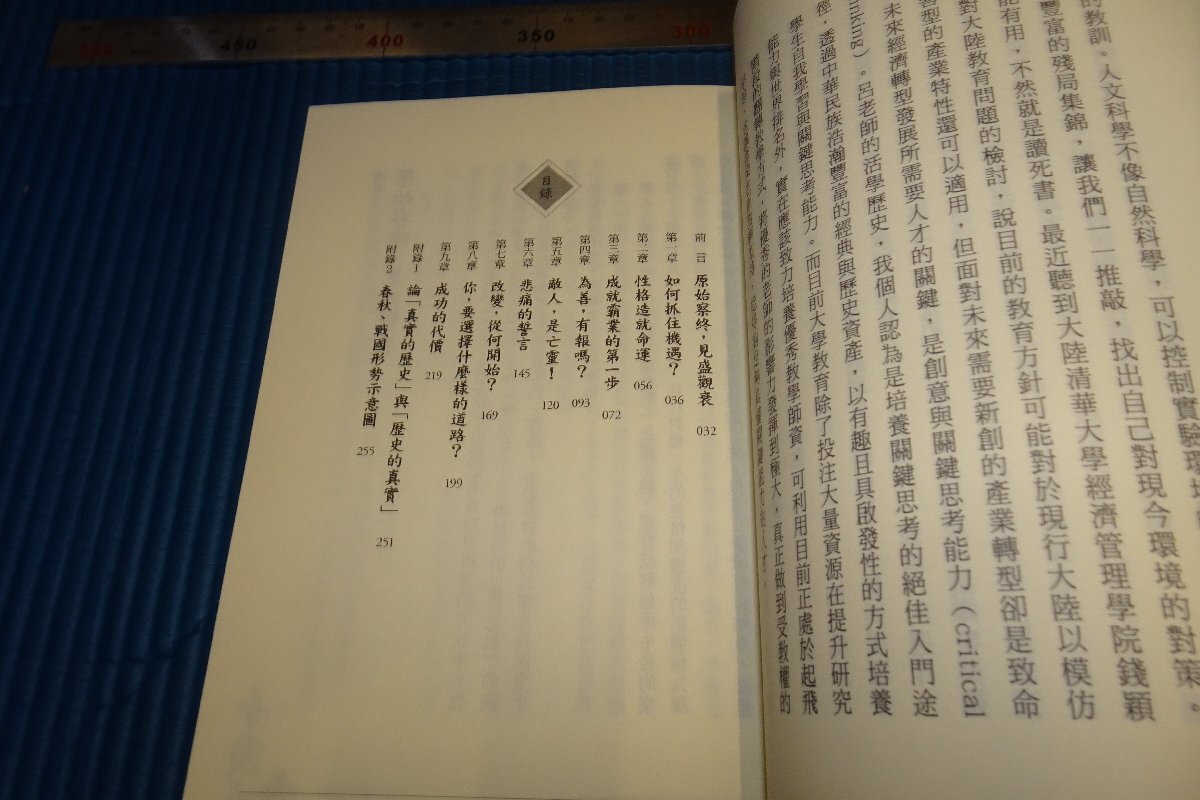 450
400
350
300
的教訓。人文科學不像自然科學，可以控制實驗環境
豐富的殘局集錦，讓我們一一推敲，找出自己對現今環境的對策。
能有用，不然就是讀死書。最近聽到大陸清華大學經濟管理學院錢穎
對大陸教育問題的檢討，說目前的教育方針可能對於現行大陸以模仿
型的產業特性還可以適用，但面對未來需要新創的產業轉型卻是致命
未來經濟轉型發展所需要人才的關鍵，是創意與關鍵思考能力（critical
nking）。呂老師的活學歷史，我個人認為是培養關鍵思考的絕佳入門途
徑，透過中華民族浩瀚豐富的經典與歷史資產，以有趣且具啟發性的方式培養
學生自我學習與關鍵思考能力。而目前大學教育除了投注大量資源在提升研究
能力與世界排名外，實在應該致力培養優秀教學師資，可利用目前正處於起飛
將優秀的老師的影響力發揮到極大，真正做到受教權的
目錄
前言 原始察終，見盛觀衰 032
第一章 如何抓住機遇？ 036
第二章 性格造就命運 056
第三章 成就霸業的第一步 072
第四章 為善，有報嗎？ 093
第五章 敵人，是亡靈！ 120
第六章 悲痛的誓言 145
第七章 改變，從何開始？ 169
第八章 你，要選擇什麼樣的道路？ 199
第九章 成功的代價 219
附錄1 論「真實的歷史」與「歷史的真實」 251
附錄2 春秋、戰國形勢示意圖 255